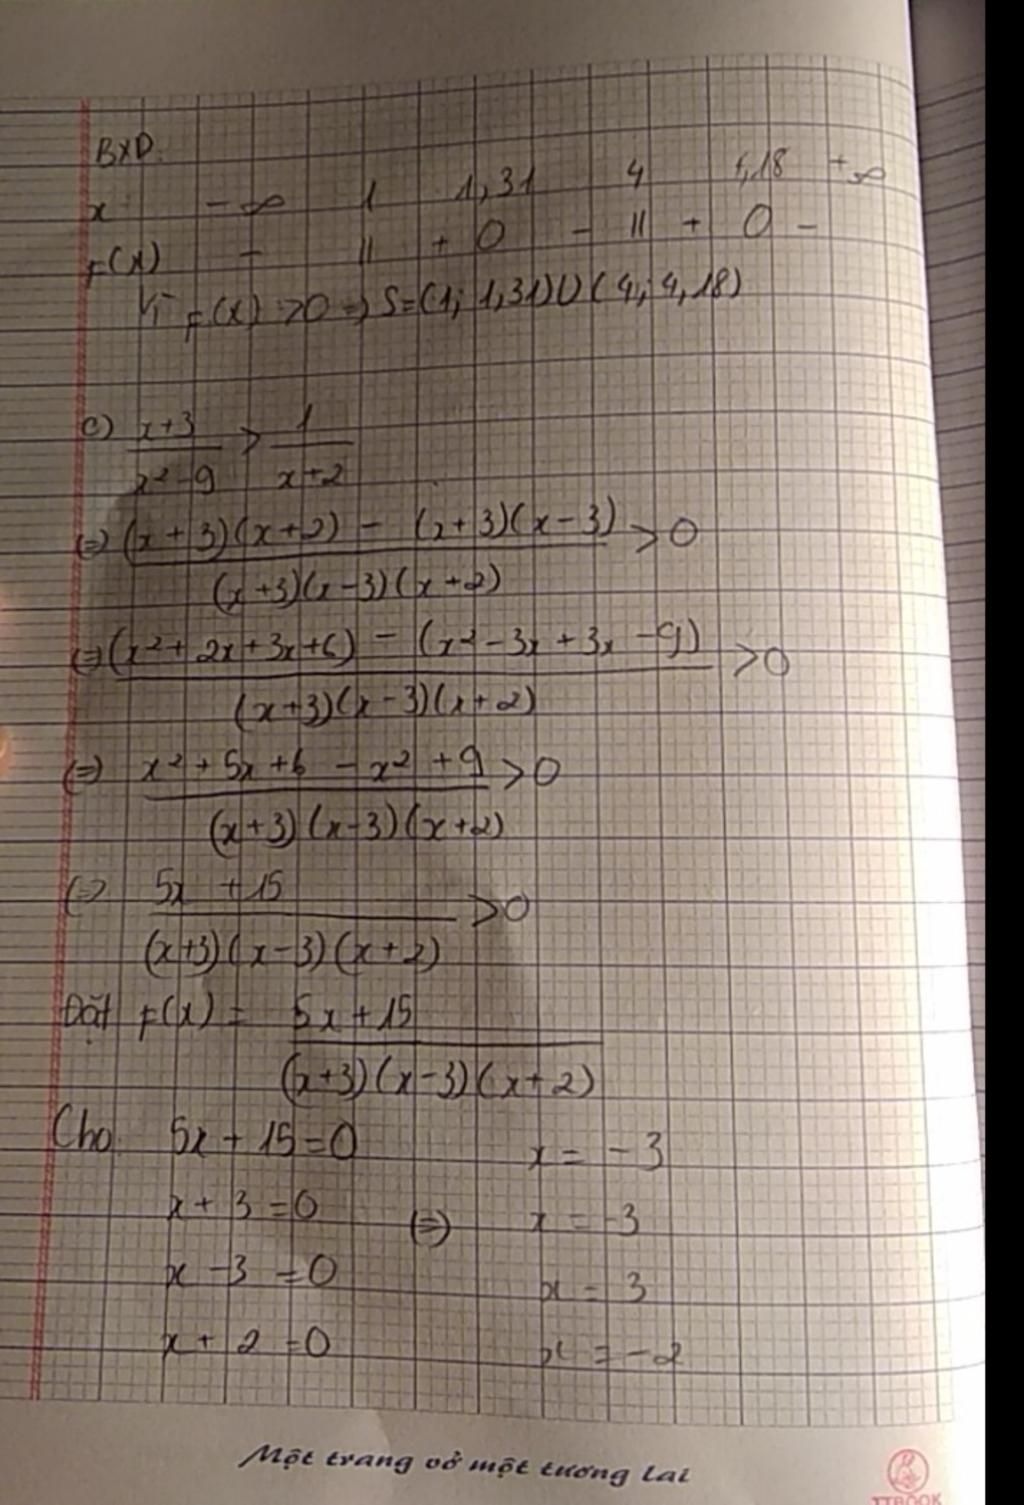 BXD.
x -∞ 1 1,31 4 4,18 +∞
f(x) - || + 0 - || + 0 -
Vì f(x) >0 => S=(1; 1,31)U(4; 4,18)
c) x+3 / x²-9 > 1 / x+2
(=) (x+3)(x+2) - (x+3)(x-3) / (x+3)(x-3)(x+2) >0
(=) (x²+2x+3x+6) - (x²-3x+3x-9) / (x+3)(x-3)(x+2) >0
(=) x²+5x+6-x²+9 / (x+3)(x-3)(x+2) >0
(=) 5x+15 / (x+3)(x-3)(x+2) >0
Đặt f(x) = 5x+15 / (x+3)(x-3)(x+2)
Cho 5x+15=0 x=-3
x+3=0 (=) x=-3
x-3=0 x=3
x+2=0 x=-2
Một trang vở một tương lai
TTBOOK